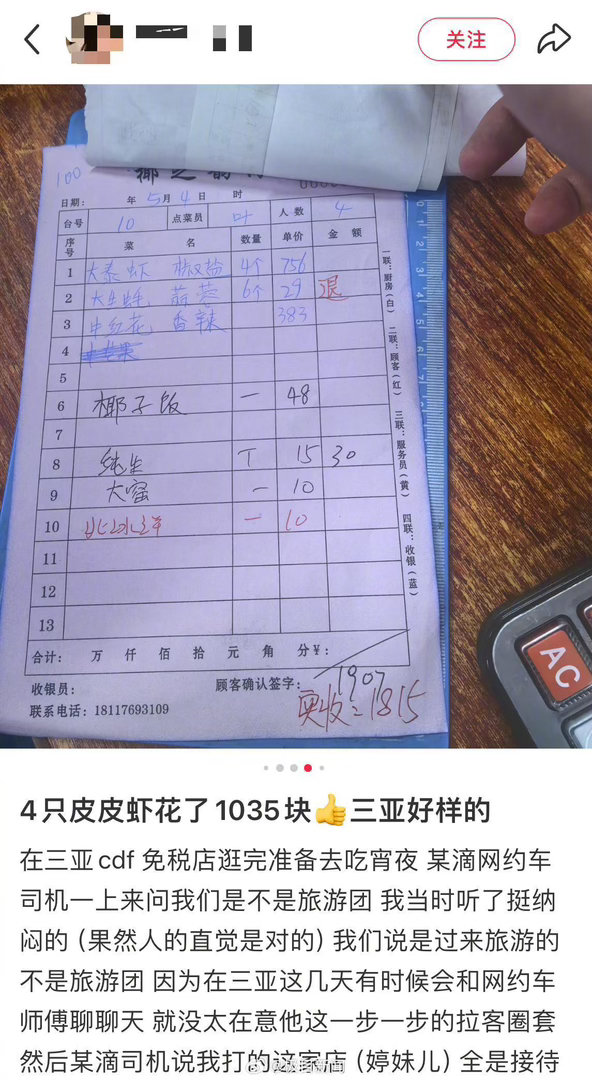 关注
100
日期： 年 5 月 4 日 时
台号 10 点菜员 叶 人数 4
序号 菜 名 数量 单价 金额
1 大泰虾 椒盐 4个 756
2 大生蚝 蒜蓉 6个 29 退
3 中红花 香辣 383
4
5
6 椰子饭 一 48
7
8 纯生 T 15 30
9 大窑 一 10
10 一 10
11
12
13
一联：厨房（白） 二联：顾客（红） 三联：服务员（黄） 四联：收银（蓝）
合计： 万 仟 佰 拾 元 角 分￥：
1907
收银员： 顾客确认签字：
实收=1815
联系电话：18117693109
AC
4只皮皮虾花了1035块👍三亚好样的
在三亚cdf 免税店逛完准备去吃宵夜 某滴网约车
司机一上来问我们是不是旅游团 我当时听了挺纳
闷的（果然人的直觉是对的）我们说是过来旅游的
不是旅游团 因为在三亚这几天有时候会和网约车
师傅聊聊天 就没太在意他这一步一步的拉客圈套
然后某滴司机说我打的这家店（婷妹儿）全是接待